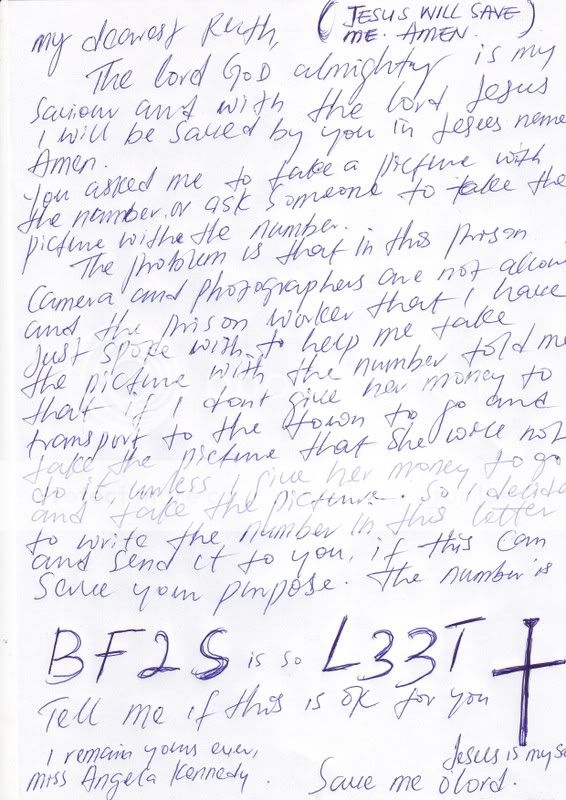 (JESUS WILL SAVE
ME. AMEN.)
my dearest Ruth,
The lord GOD almighty is my
saviour and with the lord Jesus
I will be saved by you in Jesus name
Amen.
You asked me to take a picture with
the number. or ask someone to take the
picture withe the number.
The problem is that in this prison
camera and photographers are not allow
and the prison worker that I have
just spoke with to help me take
the picture with the number told me
that if I dont give her money to
transport to the town to go and
take the picture that she will not
do it unless I give her money to go
and take the picture. So I decide
to write the number in this letter
and send it to you, if this can
serve your purpose. the number is
BF2S is so L33T
Tell me if this is ok for you
I remain yours ever,
miss Angela Kennedy.
Jesus is my
Save me o'lord.